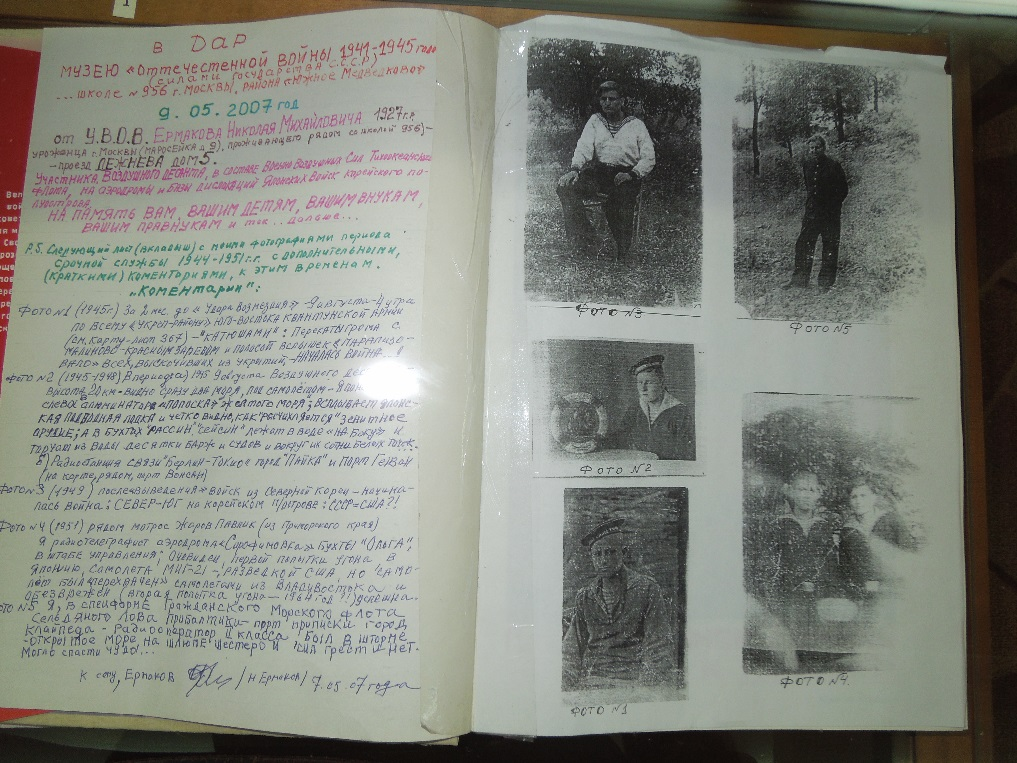 1
В ДАР
МУЗЕЮ «Оттечественной ВОЙНЫ 1941-1945 года
(силами государства СССР)
... школе №956 г. МОСКВЫ, РАЙОНА «Южное МЕДВЕДКОВО»
9.05.2007 год
от У.В.О.В. Ермакова Николая Михайловича 1927 г.р.
урожанца г. Москвы (Маросейка д. 9), проживающего рядом со школой 956)-
-проезд ДЕЖНЕВА ДОМ 5.
Участника Воздушного десанта, в составе Военно Воздушных Сил Тихоокеанского
Флота, на аэродромы и базы дислокаций Японских Войск корейского по-
луострова.
НА ПАМЯТЬ ВАМ, ВАШИМ ДЕТЯМ, ВАШИМ ВНУКАМ,
ВАШИМ ПРАВНУКАМ и так... дальше...
P.S. Следующий лист (вкладыш) с моими фотографиями периода
срочной службы 1944-1951 г.г. с дополнительными,
(краткими) коментариями, к этим временам.
„Коментарии":
ФОТО №1 (1945г) За 2 мес. до «Удара возмездия» - 9 августа - 4 утра
по всему «укреп-району» юго-востока квантунской Армии
(см. карту - лист 367) - "КАТЮШАМИ": Перекаты грома с
малиново-красном заревом и полосой вспышек «парализо-
вало» всех, выскочивших из укрытий, - НАЧАЛАСЬ ВОЙНА...
ФОТО №2 (1945-1948) В период 9 августа Воздушного
высота 20 км - видно сразу два моря, под самолётом -
слево алюминатора «полоска» жолтого моря; всплывает японс-
кая подводная лодка и четко видно, как "расчихляется" зенитное
орудие; а в бухтах "РАССИН", "СЕЙСИН" лежат в воде «на боку» и
торчат из воды десятки барж и судов и вокруг их сотни белых точек.
б) Радиостанция связи "Берлин-Токио" город "ПАЙКА" и порт Гензан
(на карте, рядом, порт Вонсан)
ФОТО №3 (1949) после «выведения» войск из Северной Кореи - начина-
лась война: СЕВЕР-ЮГ на корейском п/острове: СССР=США?!
ФОТО №4 (1951) рядом матрос Жаров Павлик (из Приморского края)
Я радиотелеграфист аэродрома «Серафимовка» бухты "Ольга",
в штабе управления; Очевидец, первой попытки угона в
Японию, самолёта МИГ-21 - разведкой США, но "само-
лёт был перехвачен" самолетами из Владивостока и
обезврежен (вторая попытка угона - 196 год?!) успешна.
ФОТО №5 Я, в спецформе Гражданского Морского Флота
Сельдяного Лова Прибалтики - порт приписки город
Клайпеда - Радиооператор II класса, был в шторме
-открытое море на шлюпе шестеро и "сил грести нет.
Могло спасти чудо...
К сему, Ермаков /Н Ермаков/ 7.05.07 года
ФОТО №3
ФОТО №5
ФОТО №2
ФОТО №1
ФОТО №4